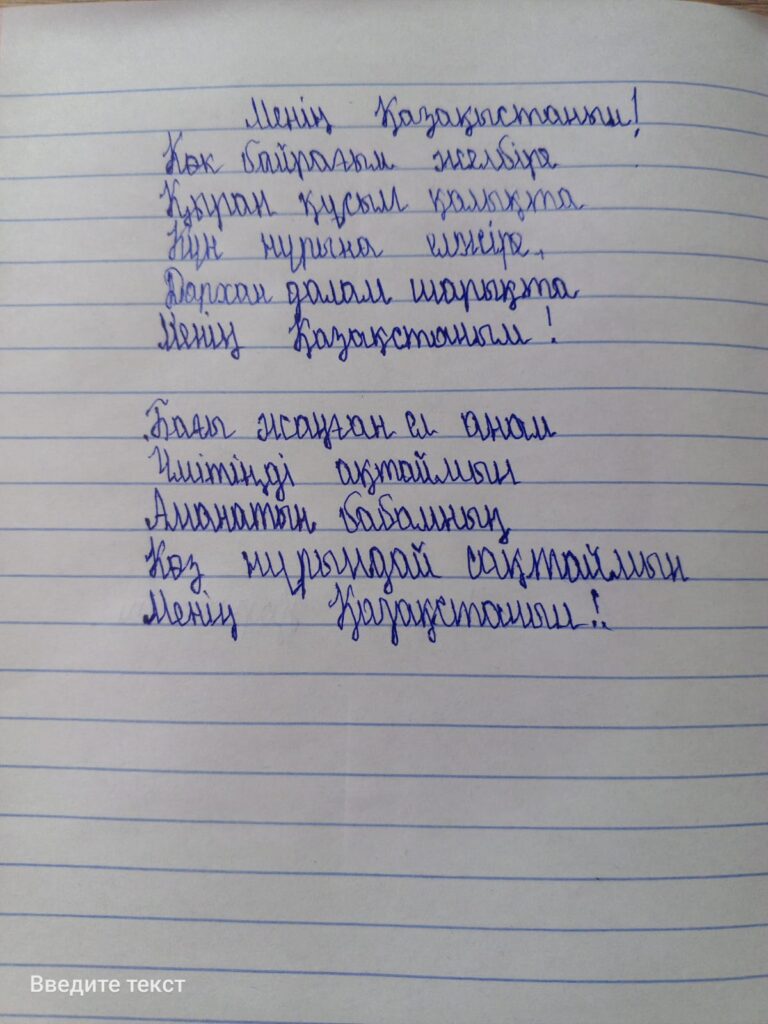 Менің Қазақыстаным!
Көк байрағым желбіре
Қыран құсым қалықта
Күн нұрына елжіре,
Дархан далам шарықта
Менің Қазақстаным!
Бағы жанған ел анам
Үмітіңді ақтаймын
Аманатын бабамның
Көз нұрындай сақтаймын
Менің Қазақстаным!
Введите текст